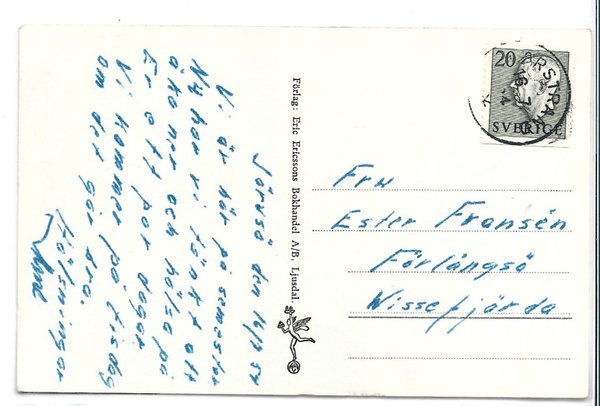 Järvsö den 16/7 54
Vi är här på semester
Nu har vi tänkt att
åka ner och hälsa på
Er ett par dagar
Vi kommer på tisdag
om det går bra.
Hälsningar
Förlag: Eric Ericssons Bokhandel A/B, Ljusdal.
20
SVERIGE
Fru
Ester Fransén
Förlångsö
Vissefjärda